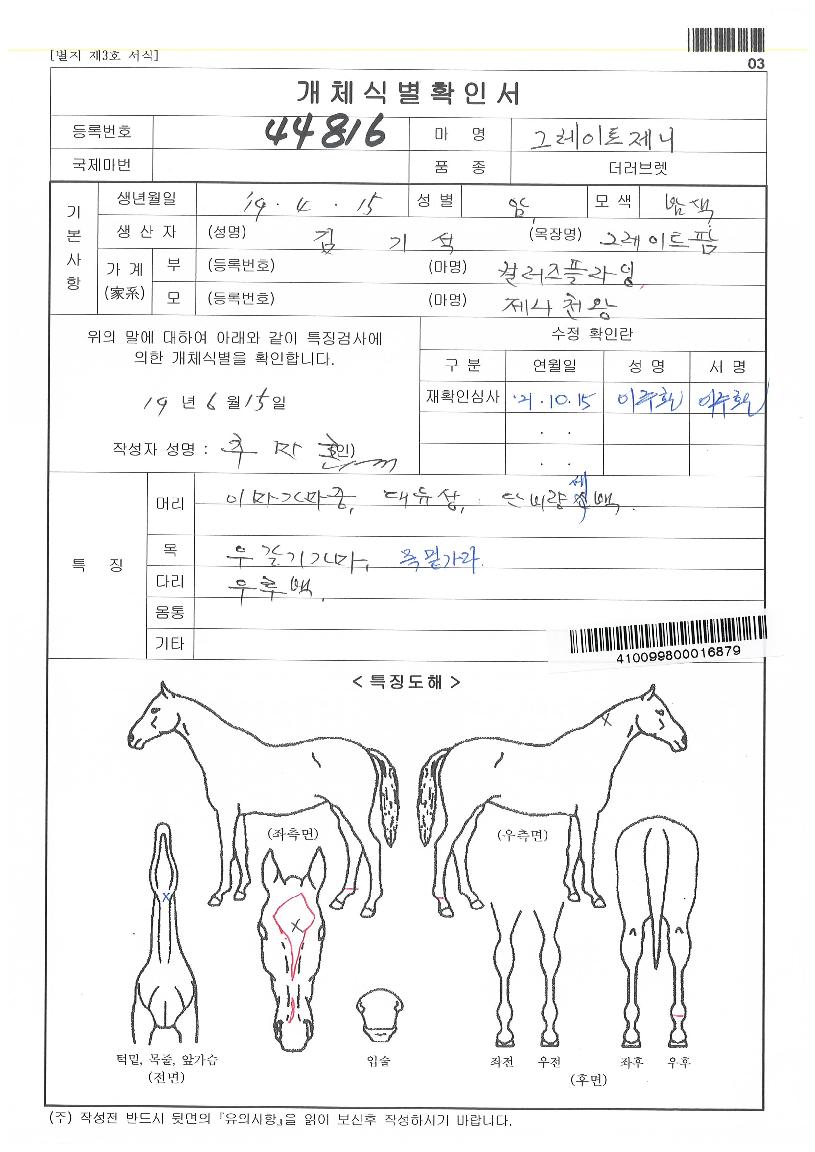 [별지 제3호 서식]
03
개체식별확인서
등록번호 44816 마 명 그레이트제니
국제마번 품 종 더러브렛
기본사항
생년월일 '19. 4. 15 성별 암 모색 밤색
생산자 (성명) 김기석 (목장명) 그레이트팜
가계(家系) 부 (등록번호) (마명) 컬러즈플라잉
모 (등록번호) (마명) 제사천왕
위의 말에 대하여 아래와 같이 특징검사에
의한 개체식별을 확인합니다.
19 년 6 월 15 일
작성자 성명 : (인)
수정 확인란
구분 연월일 성명 서명
재확인심사 '21.10.15
. .
. .
특징
머리 이마가마중, 대유성, 단비량세백.
목 우갈기가마, 목밑가마.
다리 우후백.
몸통
기타
410099800016879
< 특징도해 >
(좌측면) (우측면)
턱밑, 목줄, 앞가슴
(전면)
입술
좌전 우전 좌후 우후
(후면)
(주) 작성전 반드시 뒷면의 『유의사항』을 읽어 보신후 작성하시기 바랍니다.